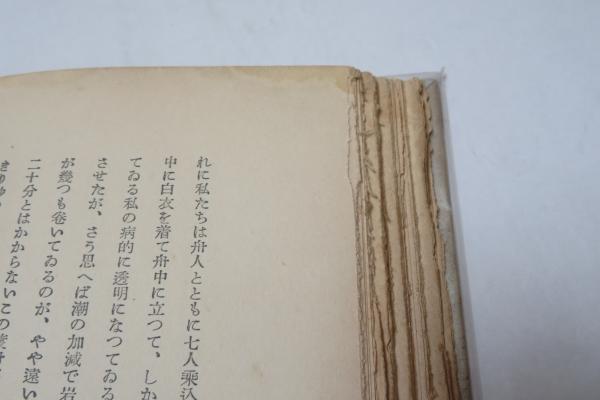 れに私たちは舟人とともに七人乗込
中に白衣を着て舟中に立つて、しか
てゐる私の病的に透明になつてゐる
させたが、さう思へば潮の加減で岩
が幾つも巻いてゐるのが、やや遠い
二十分とはかからないこの